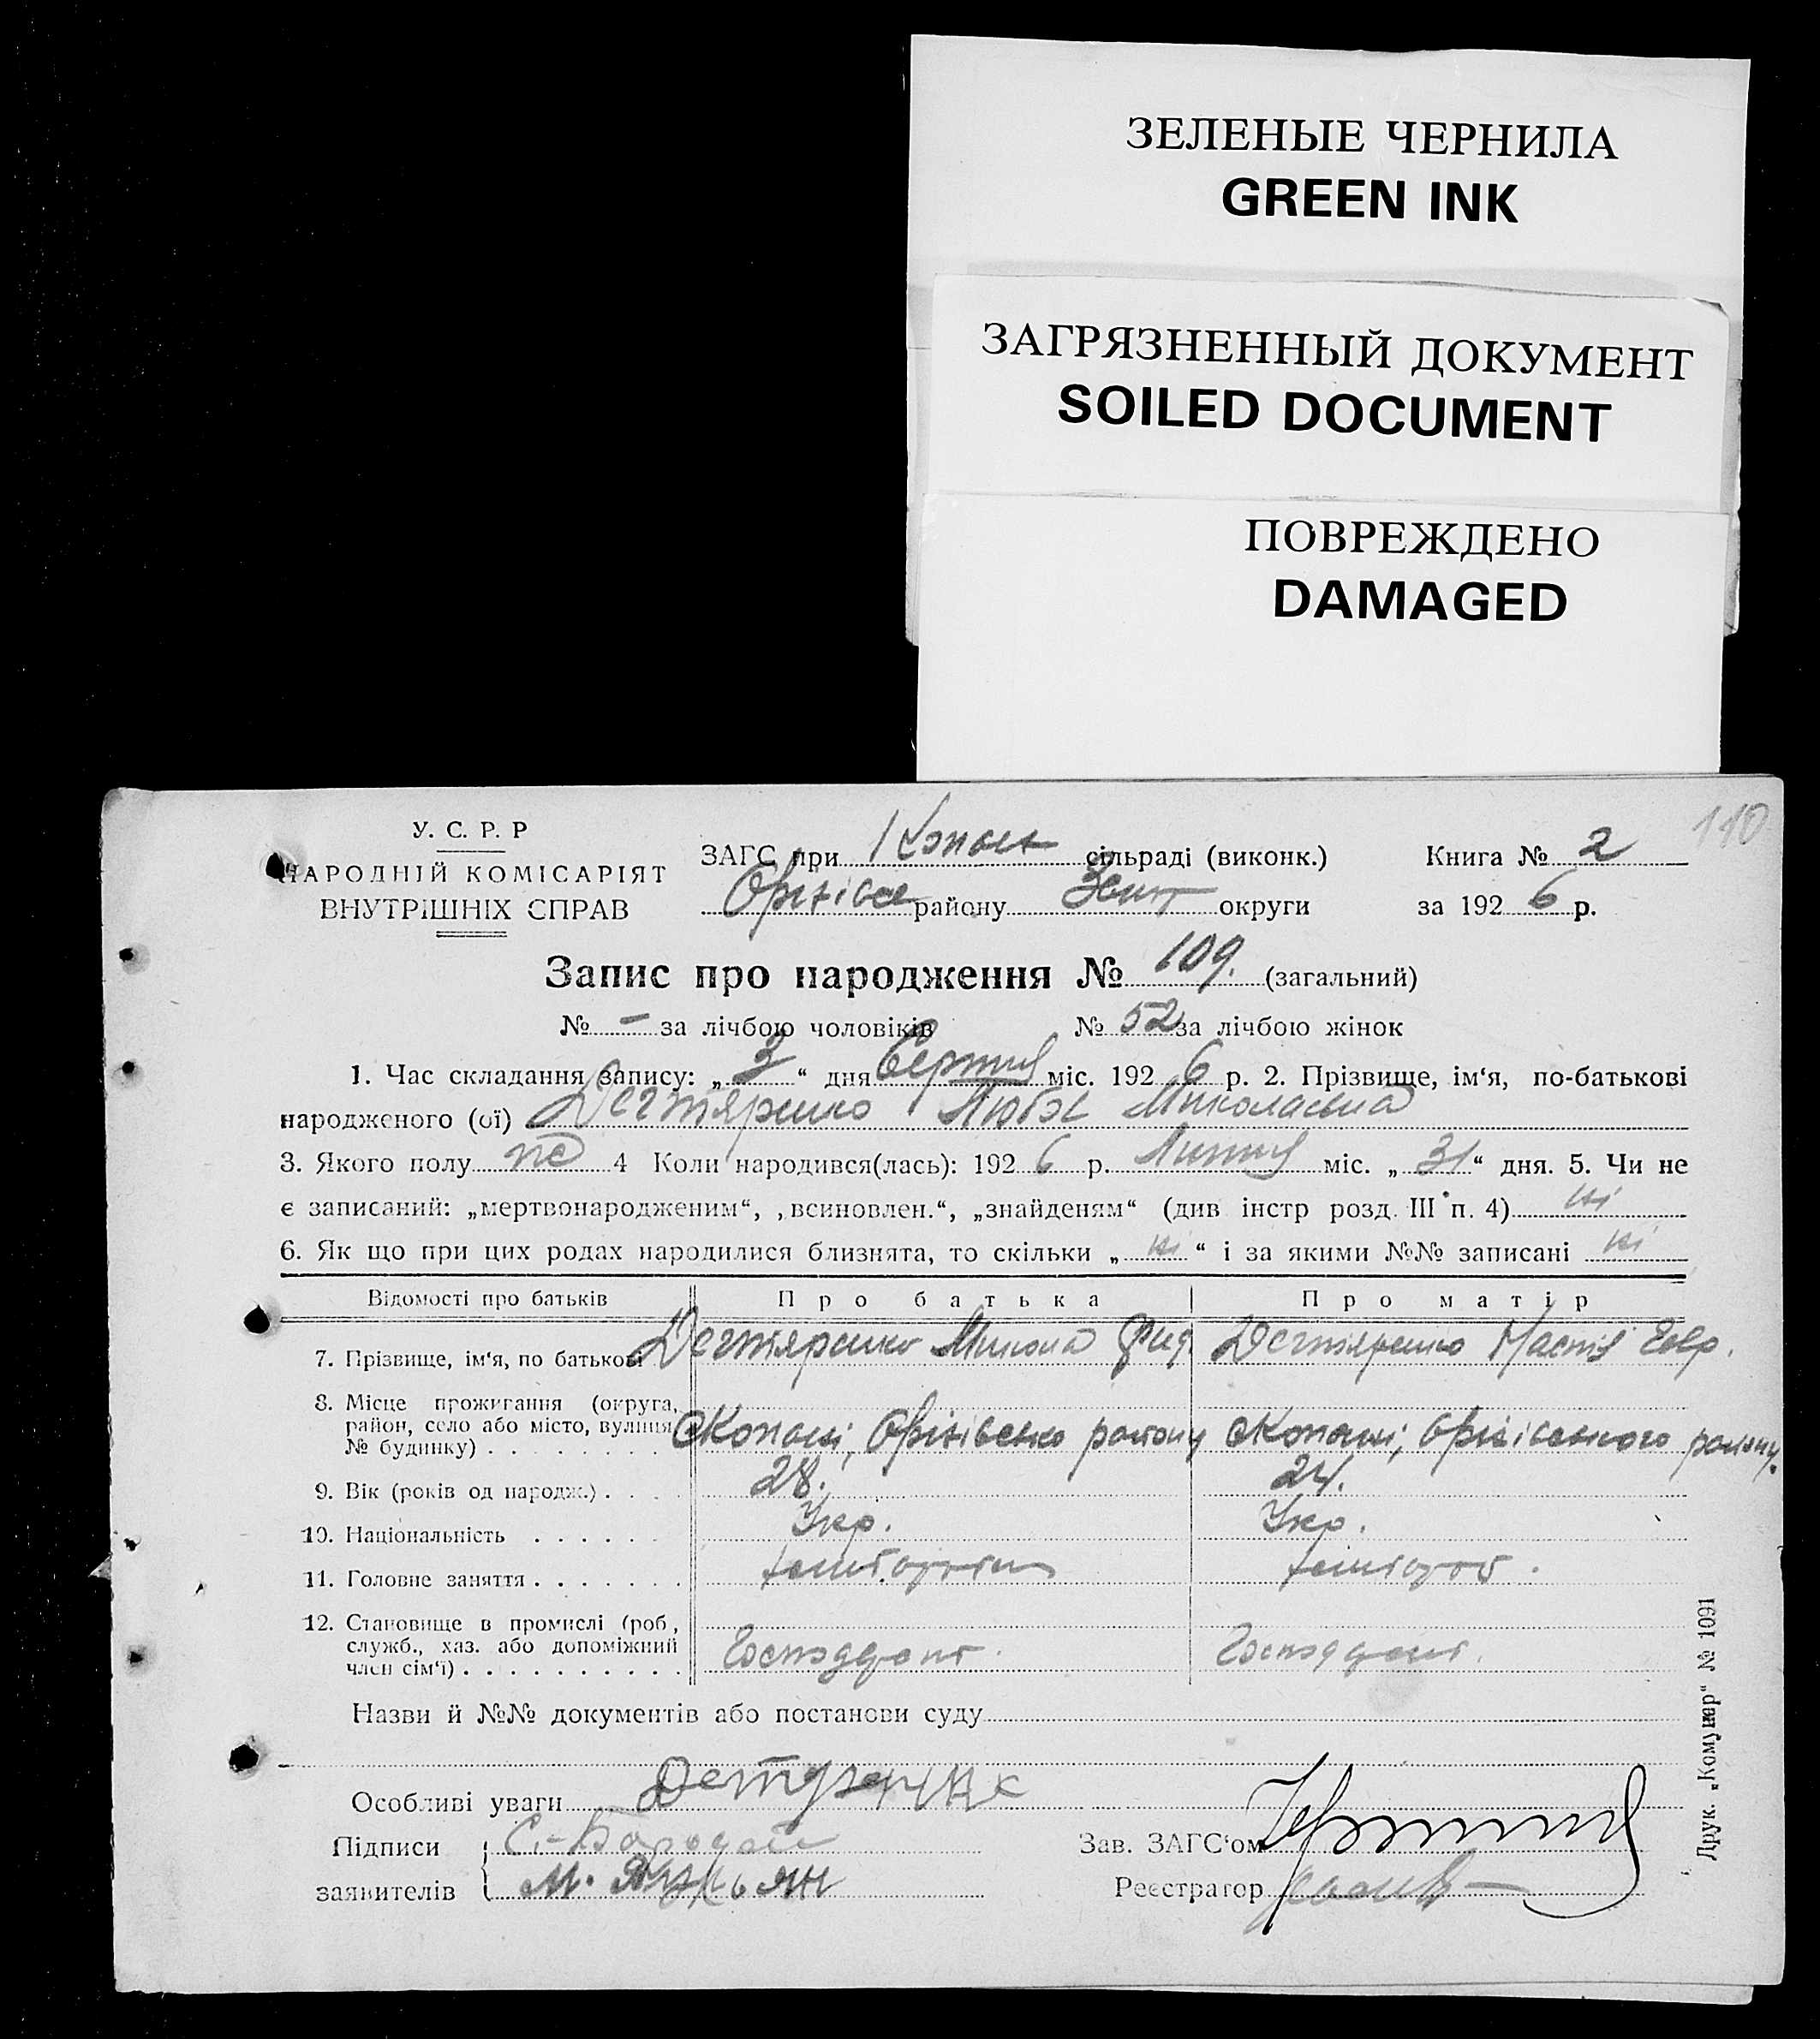 ЗЕЛЕНЫЕ ЧЕРНИЛА
GREEN INK
ЗАГРЯЗНЕННЫЙ ДОКУМЕНТ
SOILED DOCUMENT
ПОВРЕЖДЕНО
DAMAGED
110
У. С. Р. Р
НАРОДНІЙ КОМІСАРІЯТ
ВНУТРІШНІХ СПРАВ
ЗАГС при Копан сільраді (виконк.) Книга № 2
району округи за 1926 р.
Запис про народження № 109. (загальний)
№ – за лічбою чоловіків № 52 за лічбою жінок
1. Час складання запису: „3“ дня Серпня міс. 1926 р. 2. Прізвище, ім‘я, по-батькові
народженого (ої) Дегтяренко Любов Миколаєвна
3. Якого полу 4 Коли народився(лась): 1926 р. Липня міс. „31“ дня. 5. Чи не
є записаний: „мертвонародженим“, „всиновлен.“, „знайденям“ (див інстр розд. III п. 4) ні
6. Як що при цих родах народилися близнята, то скільки „ні“ і за якими №№ записані ні
Відомості про батьків Про батька Про матір
7. Прізвище, ім‘я, по батькові Дегтяренко Микола Дегтяренко Настя
8. Місце проживання (округа,
район, село або місто, вулиця
№ будинку) . . . с Копані, району с Копані, району.
9. Вік (років од народж.) . . . . 28. 24.
10. Національність . . . . . . Укр. Укр.
11. Головне заняття . . . . . . .
12. Становище в промислі (роб,
служб., хаз. або допоміжний
член сім‘ї) . . . . . . . . . .
Назви й №№ документів або постанови суду
Особливі уваги
Підписи С. Бородай Зав. ЗАГС‘ом
заявителів М. Реєстратор
Друк. „Комунар“ № 1091